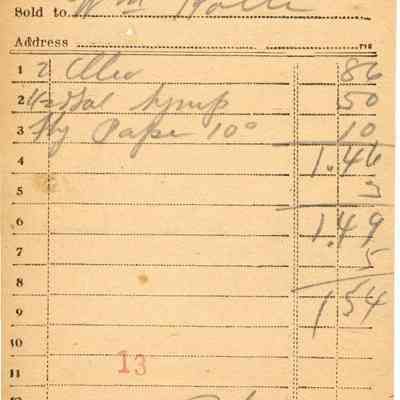 Sold to Wm
Address
1 2 Oleo 86
2 1/2 Gal Syrup 50
3 Fly Paper 10c 10
4 1.46
5 3
6 1.49
7 5
8
9 154
10
11 13